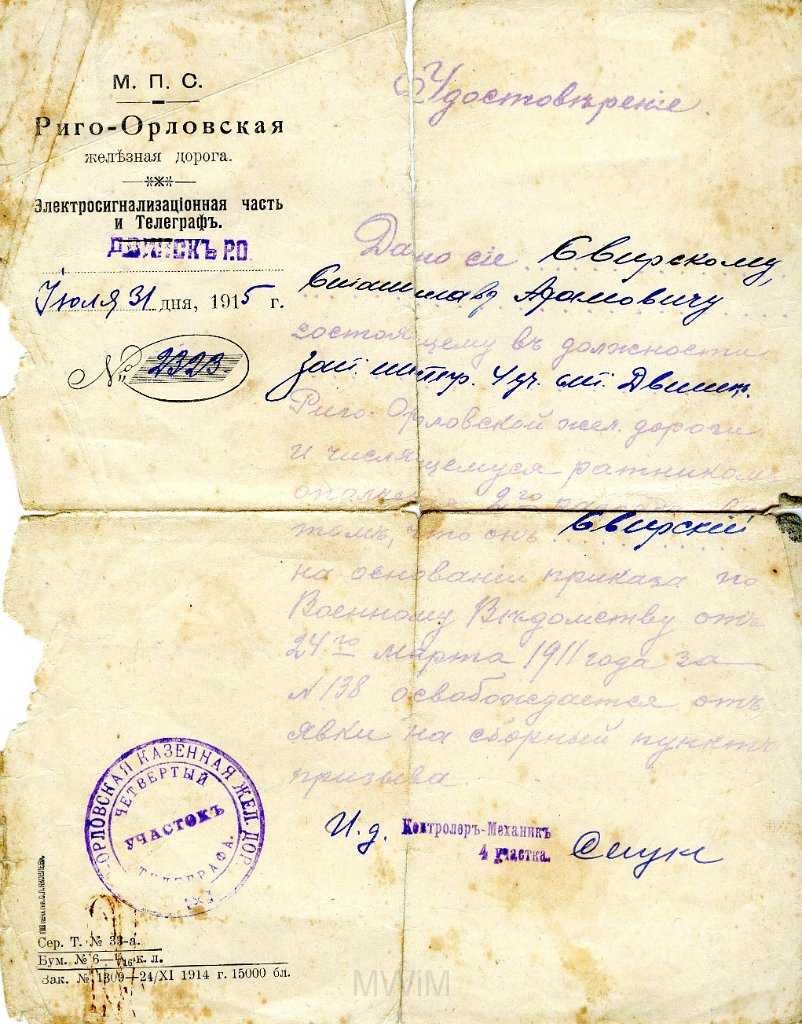 М. П. С.
Риго-Орловская
желѣзная дорога.
Электросигнализаціонная часть
и Телеграфъ.
ДВИНСКЪ Р.О
Іюля 31 дня, 1915 г.
№ 2323
Удостовѣреніе.
Дано сіе Свирскому,
Станиславу Адамовичу
состоящему въ должности
зап. 4 уч. ст. Двинск.
Риго-Орловской жел. дороги
и числящемуся ратникомъ
ополченія 2го въ
томъ, что онъ Свирскій
на основаніи приказа по
Военному Вѣдомству отъ
24го марта 1911 года за
N 138 освобождается отъ
явки на сборный пунктъ
призыва
И. д. Контролеръ-Механикъ
4 участка.
ОРЛОВСКАЯ КАЗЕННАЯ ЖЕЛ. ДОР
ЧЕТВЕРТЫЙ
УЧАСТОКЪ
ТЕЛЕГРАФА.
Сер. Т. № 33-а.
Бум. № 6—1/16 к. л.
Зак. № 1309—24/XI 1914 г. 15000 бл.
MWiM